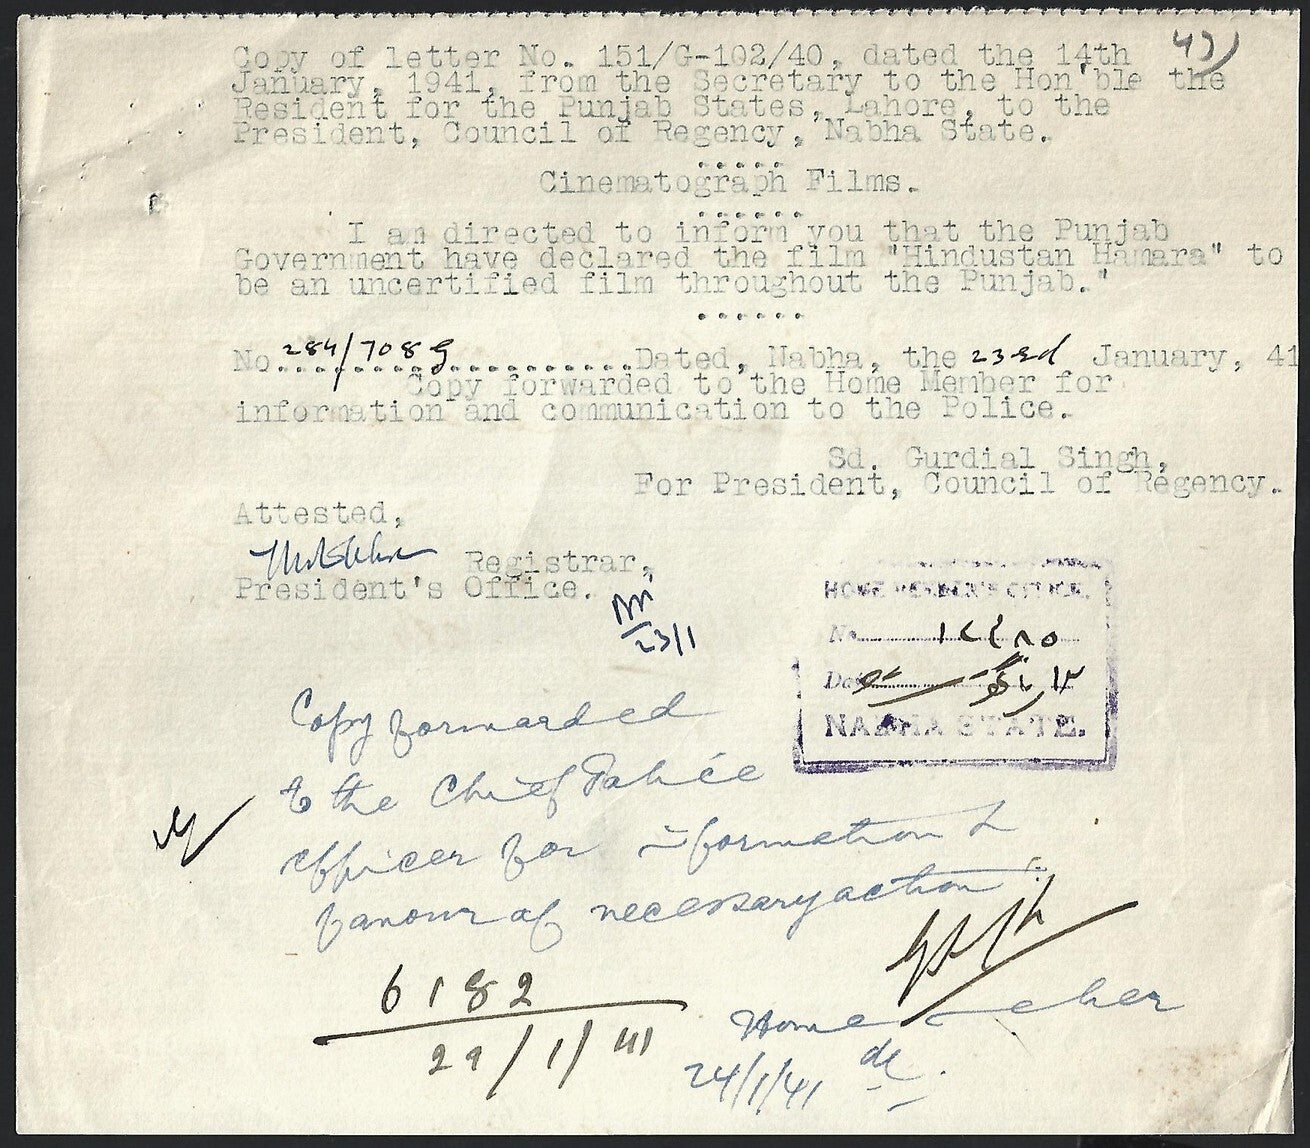 43)
Copy of letter No. 151/G-102/40, dated the 14th
January, 1941, from the Secretary to the Hon'ble the
Resident for the Punjab States, Lahore, to the
President, Council of Regency, Nabha State.
......
Cinematograph Films.
......
I am directed to inform you that the Punjab
Government have declared the film "Hindustan Hamara" to
be an uncertified film throughout the Punjab."
......
No 284/708 G Dated, Nabha, the 23rd January, 41
Copy forwarded to the Home Member for
information and communication to the Police.
Sd. Gurdial Singh,
For President, Council of Regency.
Attested,
Registrar,
President's Office.
23/1
HOME MEMBER'S OFFICE.
No.
Date
NABHA STATE.
Copy forwarded
to the Chief Police
officer for information &
favour of necessary action.
6182
29/1/41
Home
24/1/41